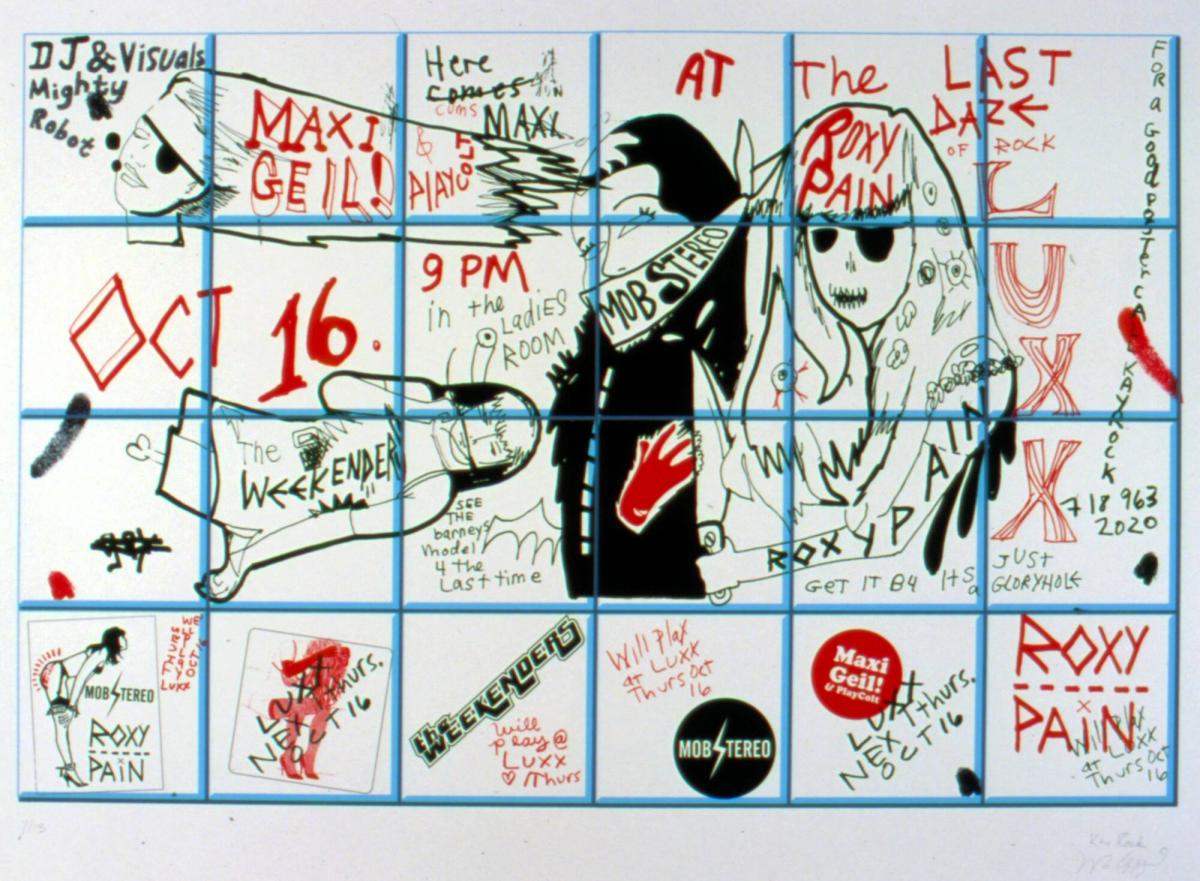 DJ & Visuals
Mighty
Robot
MAXI
GEIL!
Here
comes
cums
MAXI
&
PLAYCOLT
AT The LAST
DAZE
OF ROCK
ROXY
PAIN
LUXX
FOR a Good POSTer CALL KAYROCK
718 963
2020
OCT 16.
9 PM
in the
LADiES
ROOM
MOB STEREO
The
WEEKENDERS
SEE
THE
barneys
model
4 the
Last time
ROXY PAIN
GET IT B4 ITS a
JUST
GLORYHOLE
MOB STEREO
ROXY
PAiN
WE PLAY
LUXX
THURS
OCT 16
LUXX
NEXT thurs.
OCT 16
the WEEKENDERS
Will
play @
LUXX
Thurs
Will Play
at LUXX
Thurs Oct
16
MOB STEREO
Maxi
Geil!
& PlayColt
LUXX
NEXT thurs.
OCT 16
ROXY
x
PAIN
Will Play
at LUXX
Thurs Oct
16